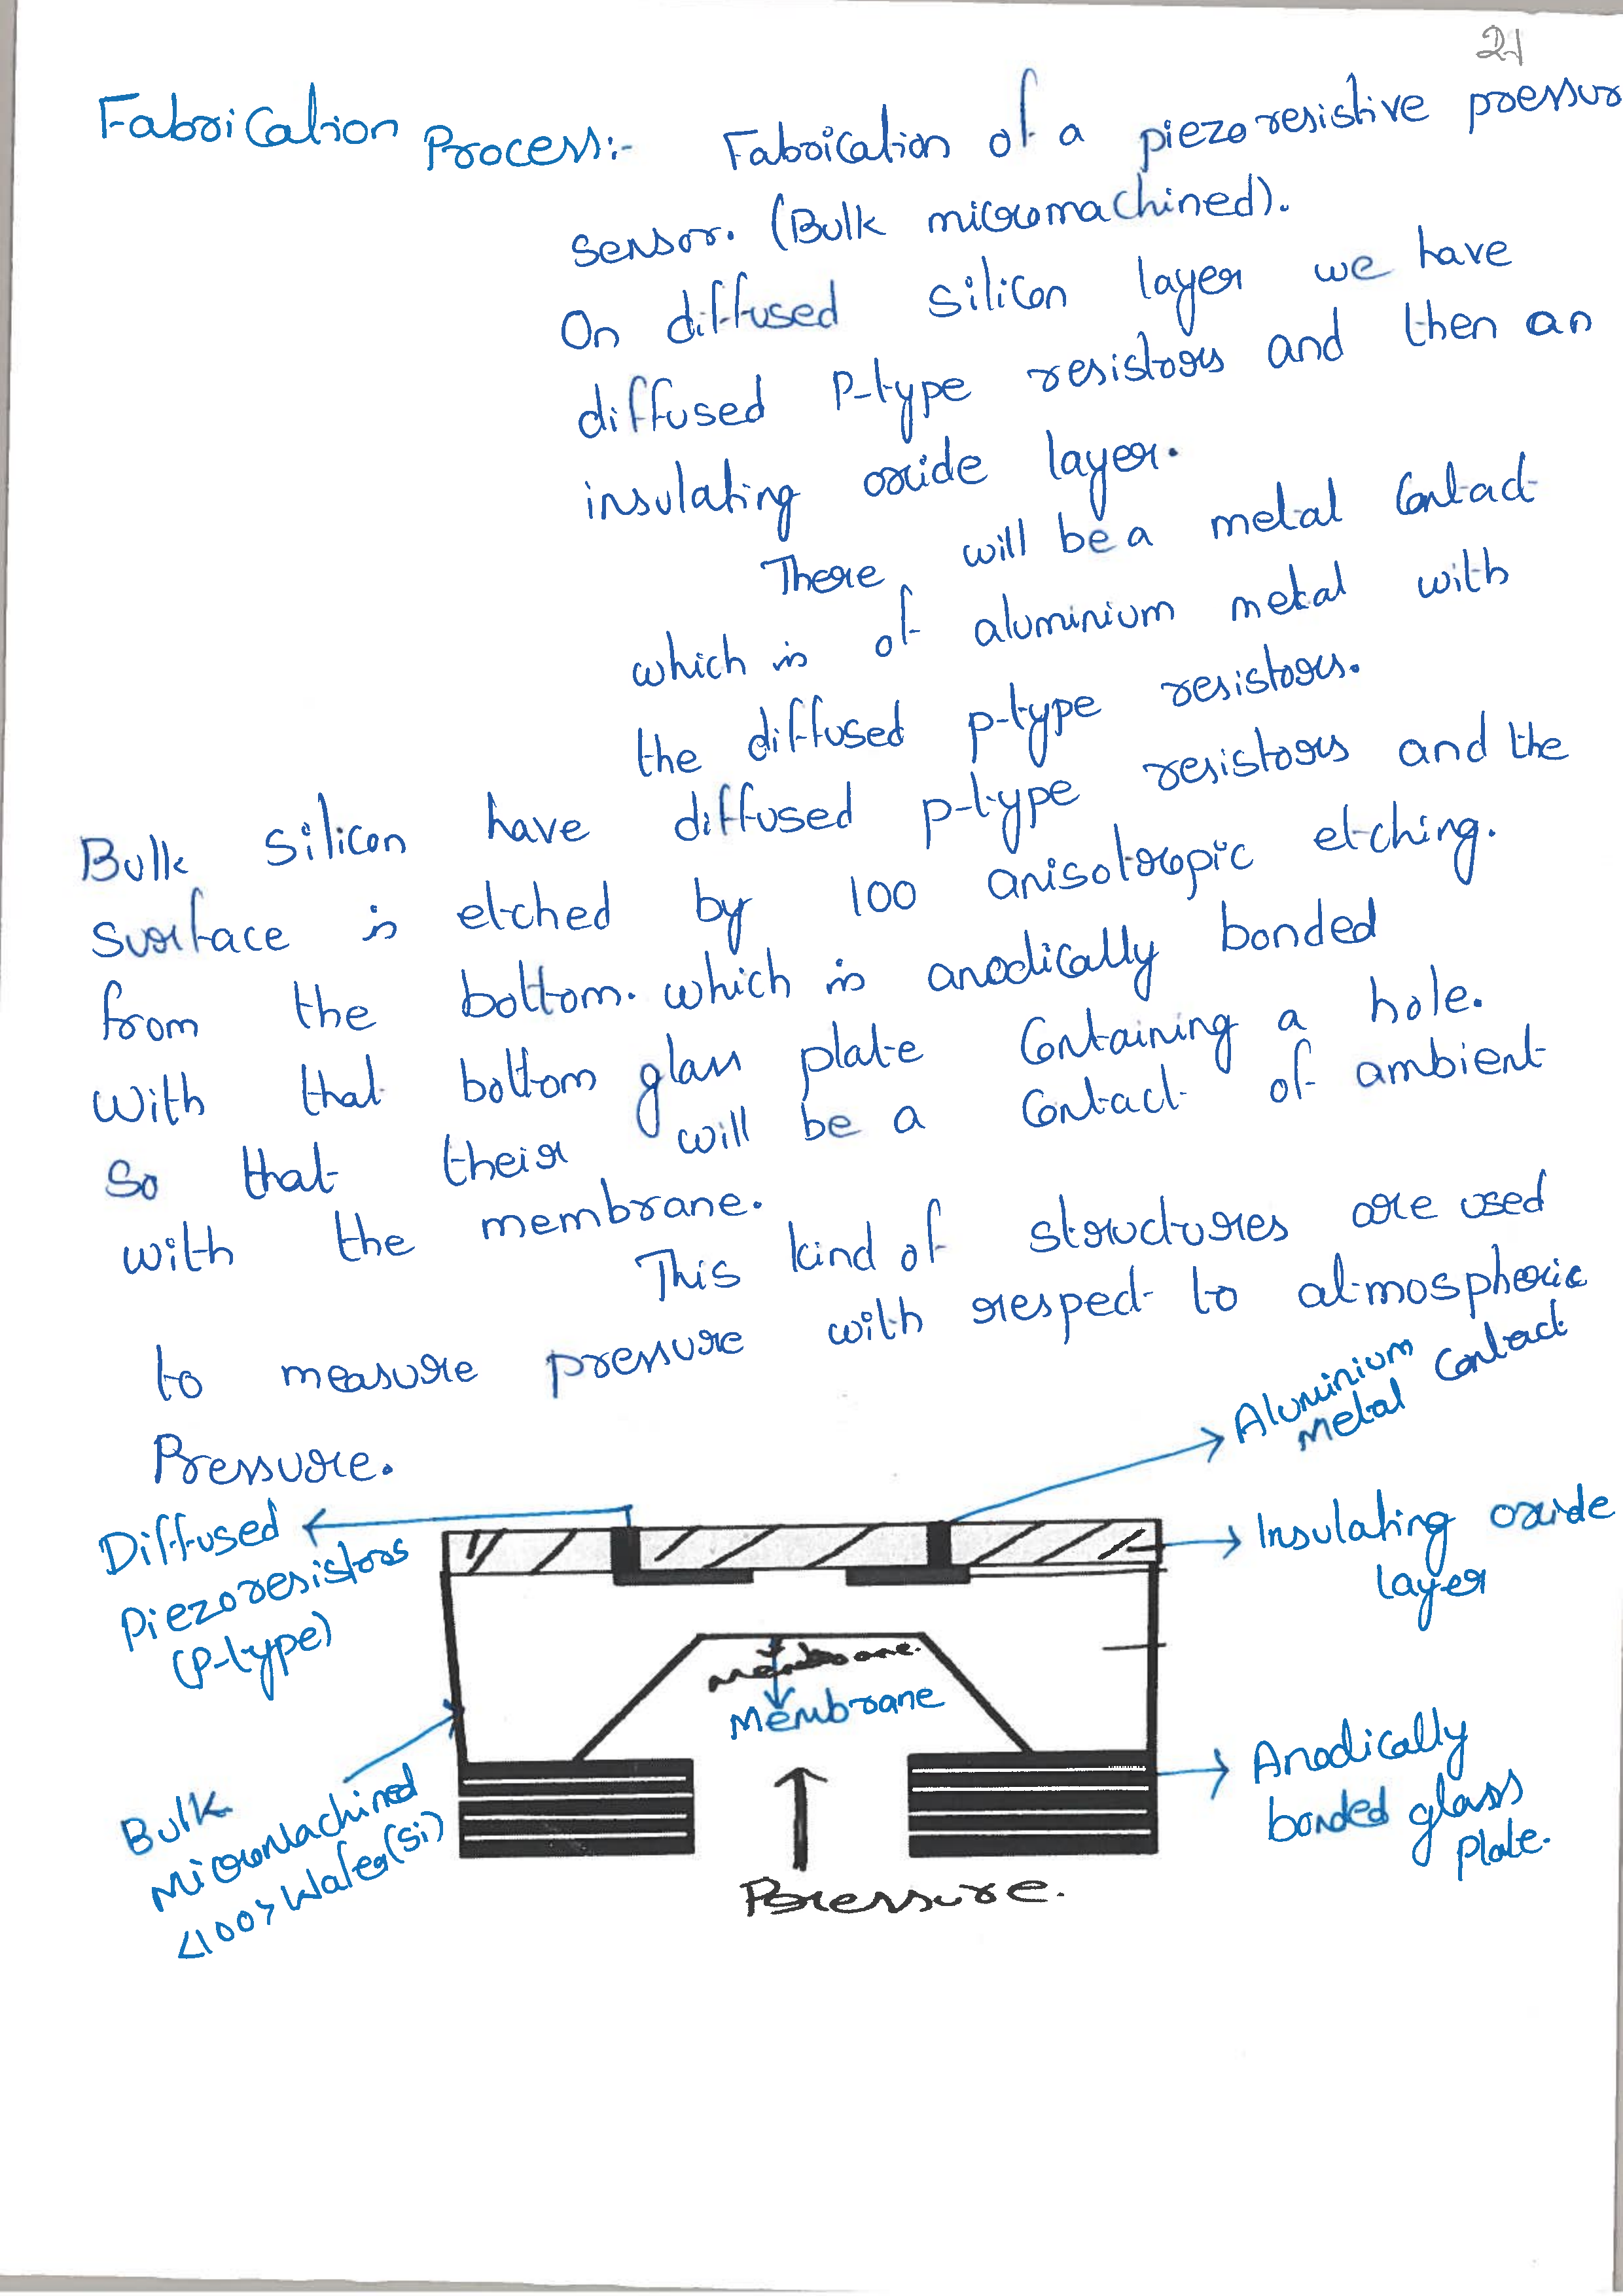 21
Fabrication Process:- Fabrication of a piezoresistive pressur
sensor. (Bulk micromachined).
On diffused silicon layer we have
diffused P-type resistors and then an
insulating oxide layer.
There will be a metal contact
which is of aluminium metal with
the diffused p-type resistors.
Bulk silicon have diffused p-type resistors and the
surface is etched by 100 anisotropic etching.
from the bottom. which is anodically bonded
with that bottom glass plate containing a hole.
So that their will be a contact of ambient
with the membrane.
This kind of structures are used
to measure pressure with respect to atmospheric
Pressure.
Aluminium
metal contact
Diffused
Piezoresistors
(P-type)
Insulating oxide
layer
membrane.
Membrane
Bulk
Micromachined
<100> Wafer(Si)
Anodically
bonded glass
plate.
Pressure.